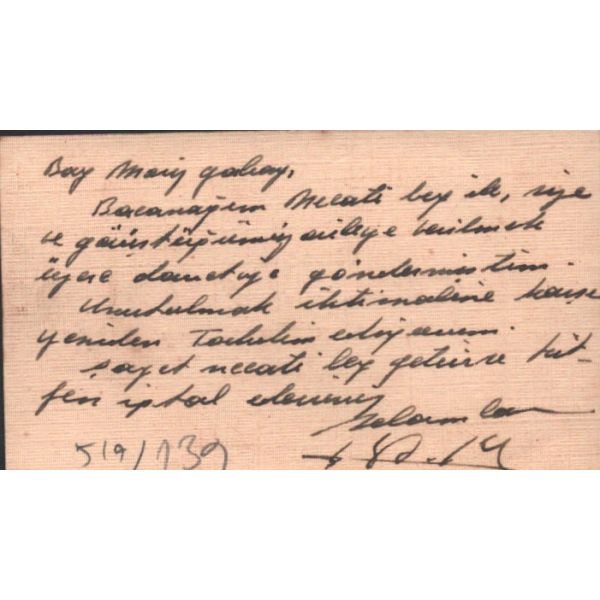 Bay Moriş Gabay,
Bacanağım Necati bey ile, size
ve görüştüğünüz aileye verilmek
üzere davetiye göndermiştim.
Unutulmak ihtimaline karşı
yeniden Takdim ediyorum.
şayet necati bey getirirse lüt-
fen iptal ediniz
Selamlar
519/139